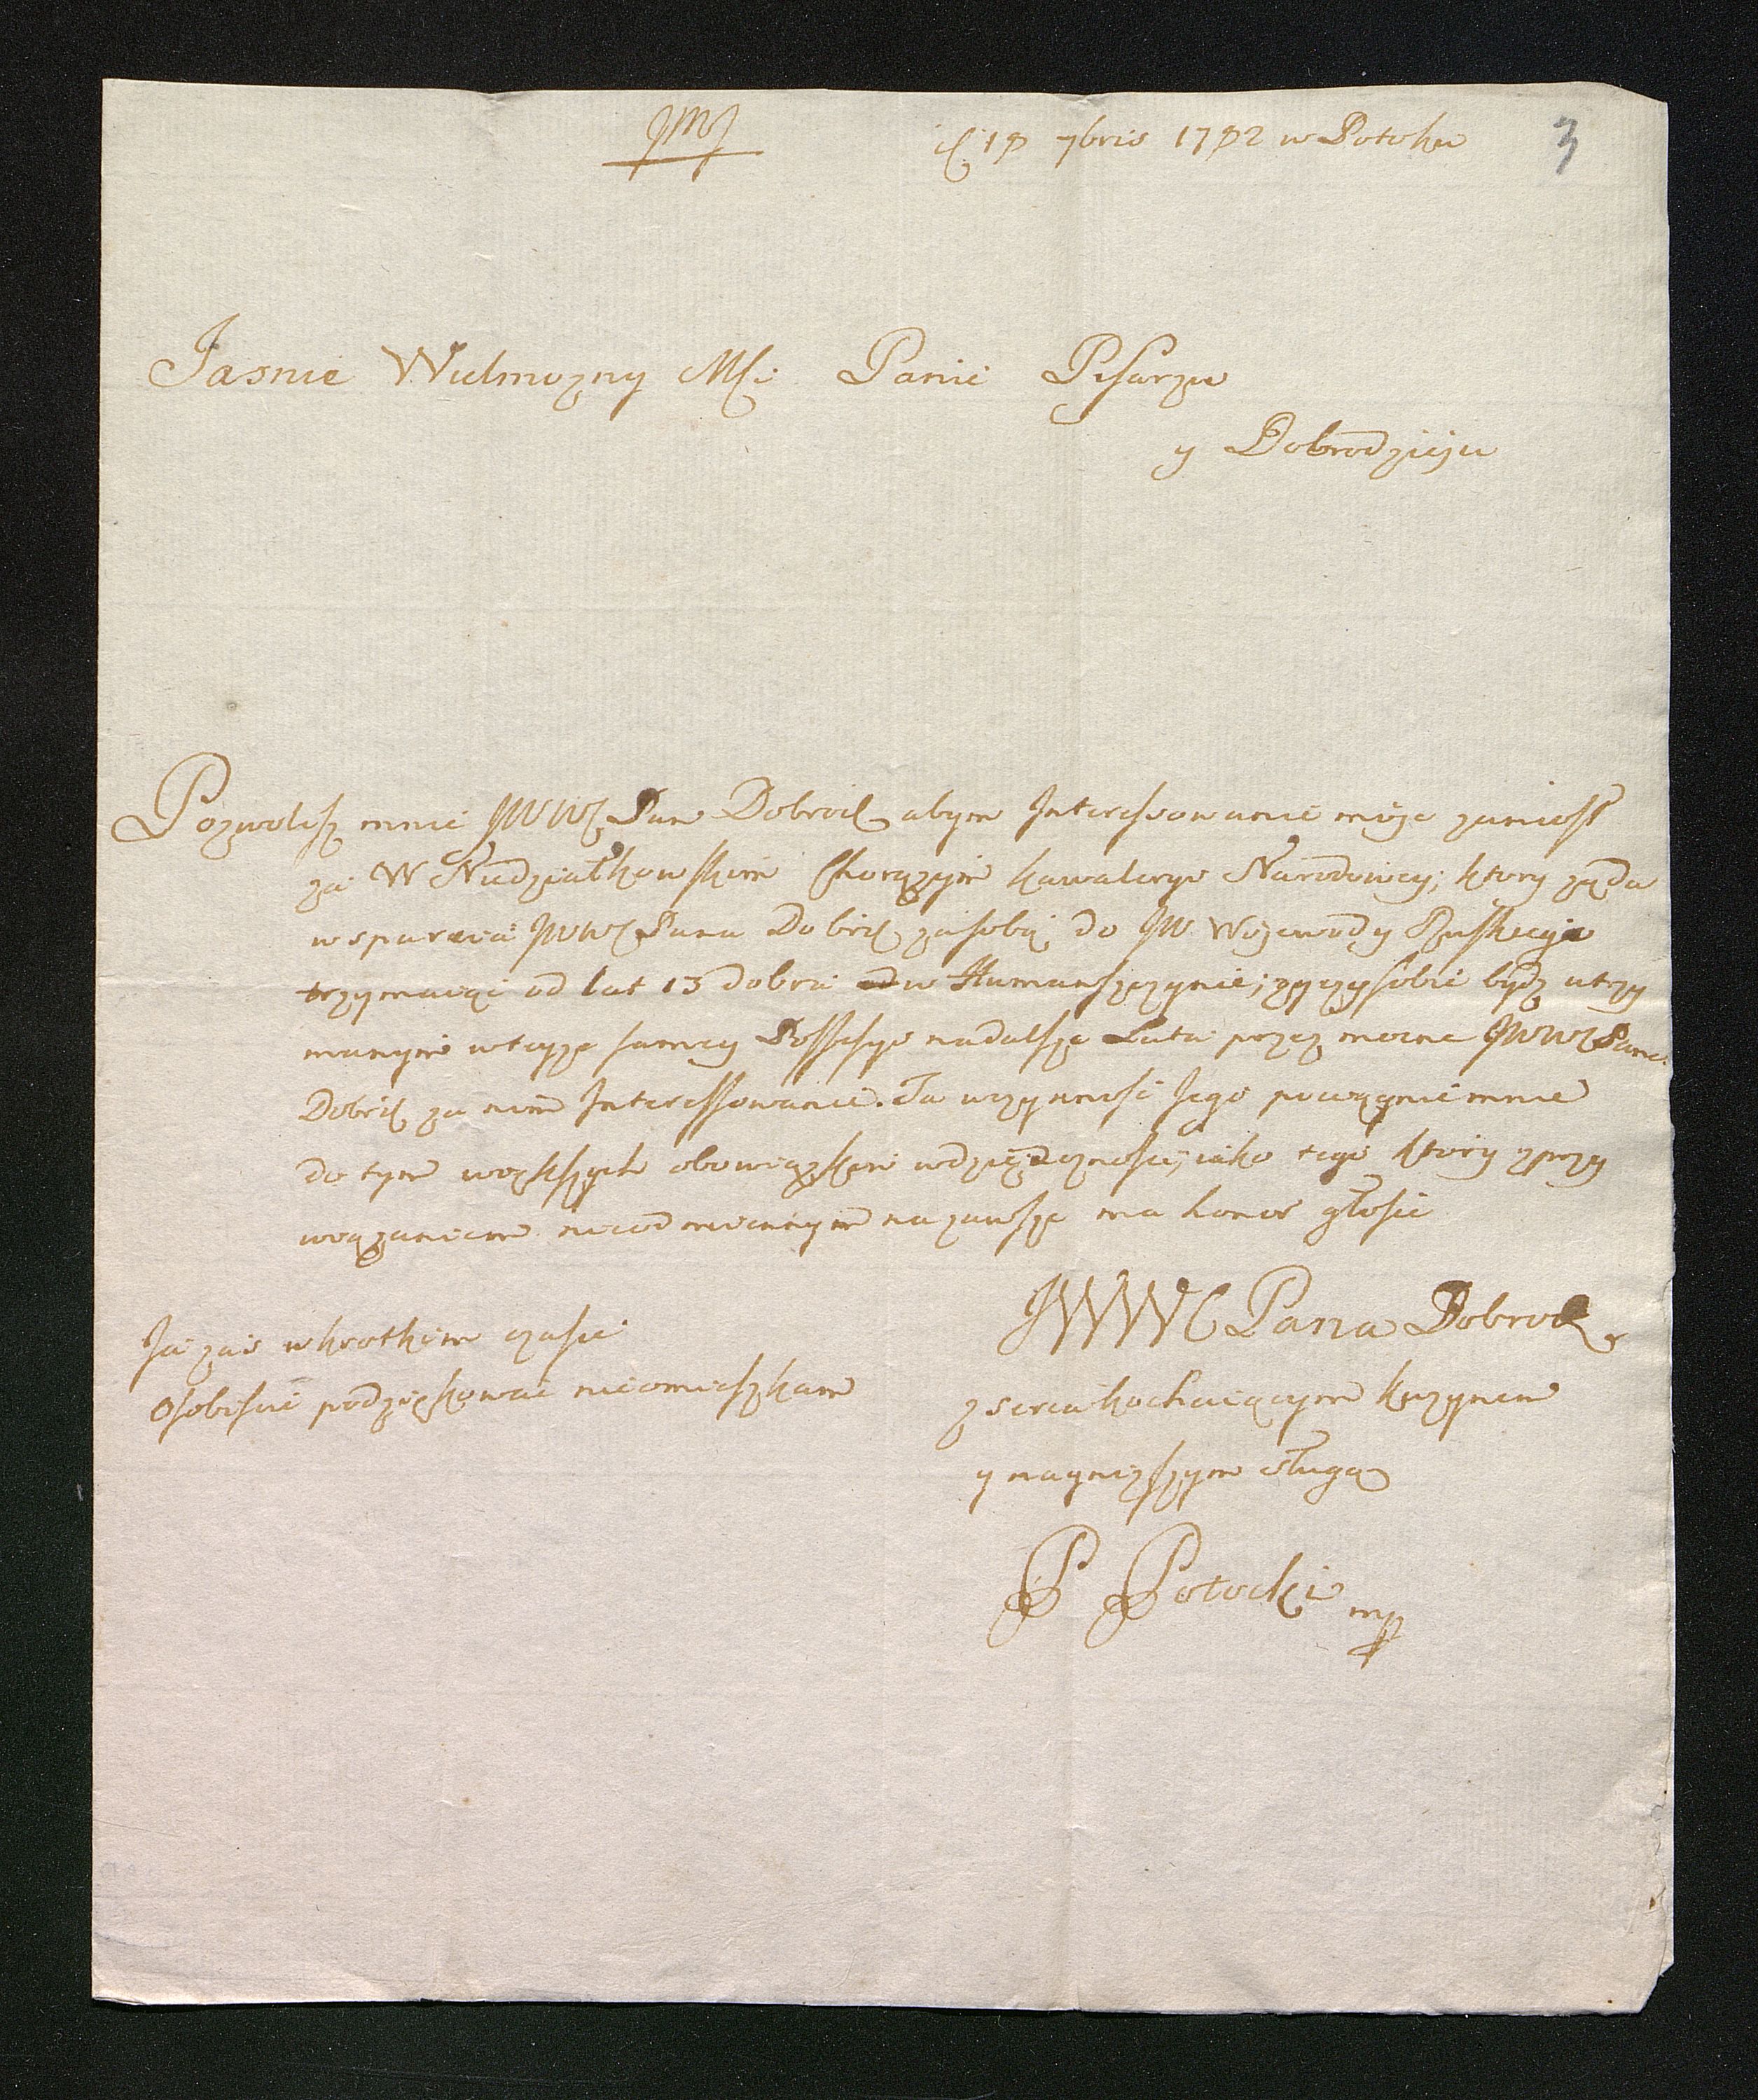 JMJ
d. 19 7bris 1792 w Potoku
3
Jasnie Wielmozny Mści Panie Pisarzu
y Dobrodzieju
Pozwolisz mnie JWWC Pan Dobrod abym Interessowanie moje zaniosł
za W Niedziałkowskim Chorązym Kawaleryi Narodowey; ktory ząda
wsparcia JWWC Pana Dobrd za sobą do JW Wojewody Ruskiego
trzymaiąc od lat 13 dobra w Humanszczyznie; zyczy sobie bydz utrzy
manym w teyze samey Possesyi nadalsze Lata przez mocne JWWC Pana
Dobrd za nim Interessowanie. Ta uczynność Jego pociągnie mnie
do tym większych obowiązkow wdzięczności, iako tego ktory z przy
wiązaniem nieodmiennym na zawsze ma honor głosic
JWWWC Pana Dobrod
z serca kochaiącym kuzynem
y naynizszym sługą
P Potocki mp
Ja zas w krotkim czasie
Osobiscie podziękowac nieomieszkam